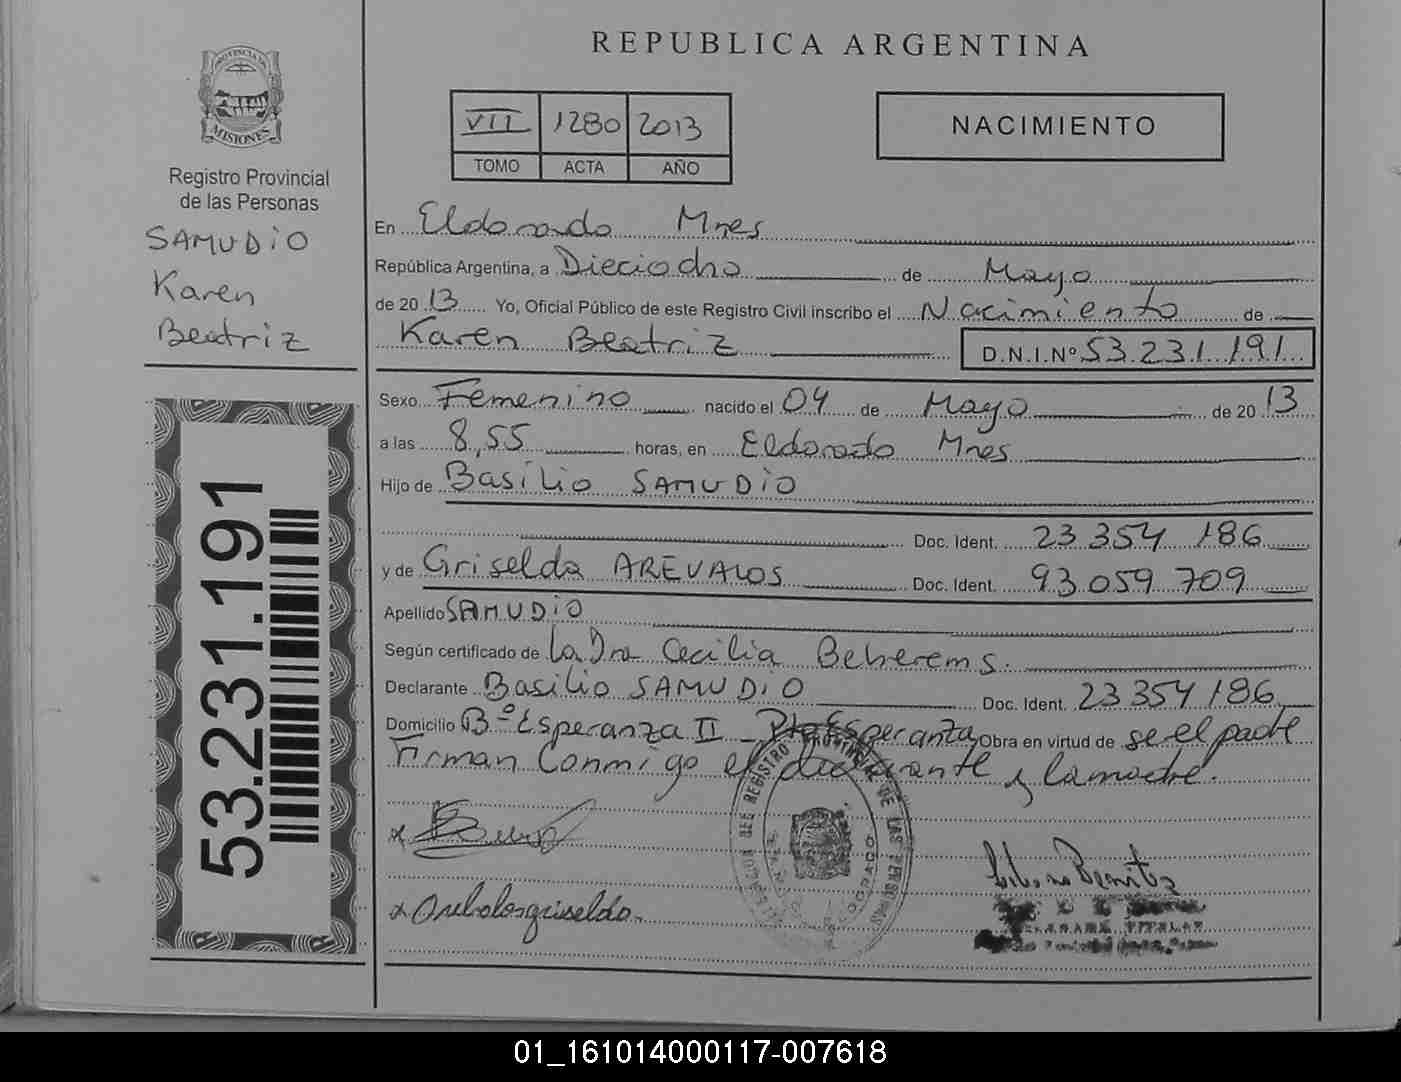 REPUBLICA ARGENTINA
PROVINCIA DE
MISIONES
Registro Provincial
de las Personas
SAMUDIO
Karen
Beatriz
53.231.191
VII 1280 2013
TOMO ACTA AÑO
NACIMIENTO
En Eldorado Mnes
República Argentina, a Dieciocho de Mayo
de 2013 Yo, Oficial Público de este Registro Civil inscribo el Nacimiento de
Karen Beatriz D.N.I.Nº 53.231.191
Sexo Femenino nacido el 04 de Mayo de 2013
a las 8,55 horas, en Eldorado Mnes
Hijo de Basilio SAMUDIO
Doc. Ident. 23 354 186
y de Griselda AREVALOS Doc. Ident. 93.059.709
Apellido SAMUDIO
Según certificado de La Dra Cecilia Beherems.
Declarante Basilio SAMUDIO Doc. Ident. 23 354 186
Domicilio Bº Esperanza II - Pto Esperanza Obra en virtud de se el padre
Firman Conmigo el declarante y la madre.
x
x Arebalos griselda
TITULAR
01_161014000117-007618